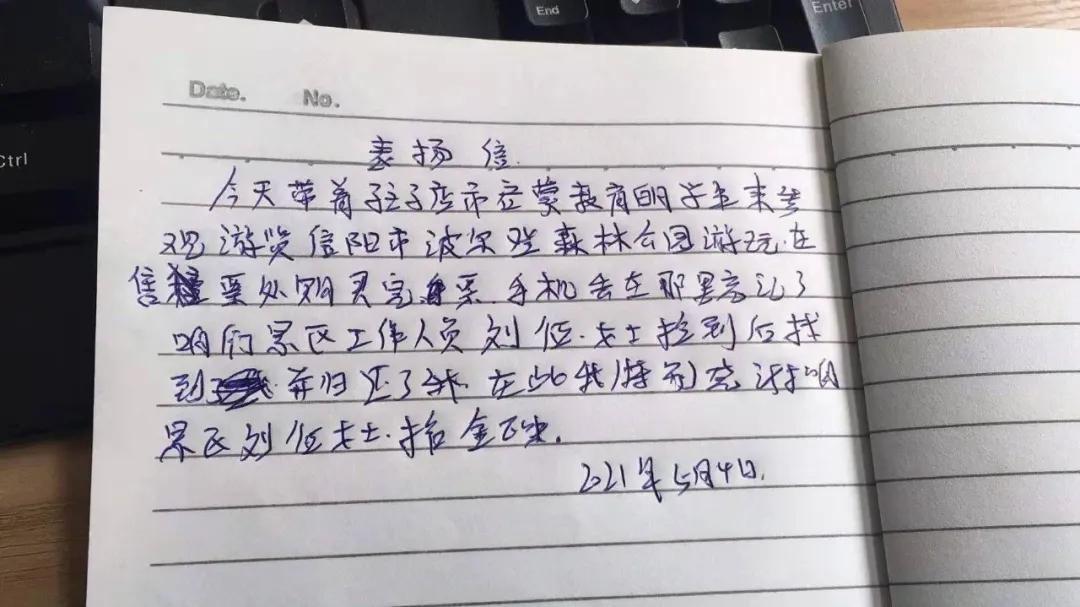 End
Enter
Ctrl
Date. No.
表扬信
今天带着孩子 市 蒙教育的学生来参
观游览信阳市波尔登森林公园游玩在
售 票处购买完票 手机丢在那里忘记了
咱们景区工作人员刘 女士捡到后找
到 并归还了我 在此我特 感谢咱
景区刘 女士 拾金不昧.
2021年5月4日.